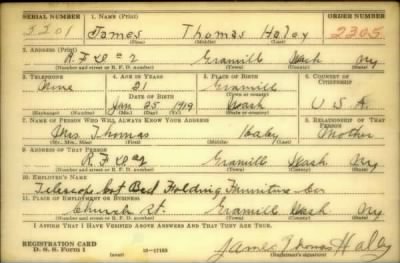 SERIAL NUMBER 1. NAME (Print) ORDER NUMBER
James Thomas Haley 2305
(First) (Middle) (Last)
2. ADDRESS (Print)
R.F.D #2 Granville Wash Ny
(Number and street or R. F. D. number) (Town) (County) (State)
3. TELEPHONE 4. AGE IN YEARS 5. PLACE OF BIRTH 6. COUNTRY OF CITIZENSHIP
None 21 Granville
(Town or county)
DATE OF BIRTH
Jan 25 1919 Wash U.S.A.
7. NAME OF PERSON WHO WILL ALWAYS KNOW YOUR ADDRESS 8. RELATIONSHIP OF THAT PERSON
Mrs. Thomas Haley Mother
(Mr., Mrs., Miss) (First) (Middle) (Last)
9. ADDRESS OF THAT PERSON
R.F.D #2 Granville Wash Ny
(Number and street or R. F. D. number) (Town) (County) (State)
10. EMPLOYER'S NAME
Telescope Cot Bed Folding Furniture Co
11. PLACE OF EMPLOYMENT OR BUSINESS
Church St. Granville Wash Ny
(Number and street or R. F. D. number) (Town) (County) (State)
I AFFIRM THAT I HAVE VERIFIED ABOVE ANSWERS AND THAT THEY ARE TRUE.
REGISTRATION CARD
D. S. S. Form 1 (over) James Thomas Haley
(Registrant's signature)